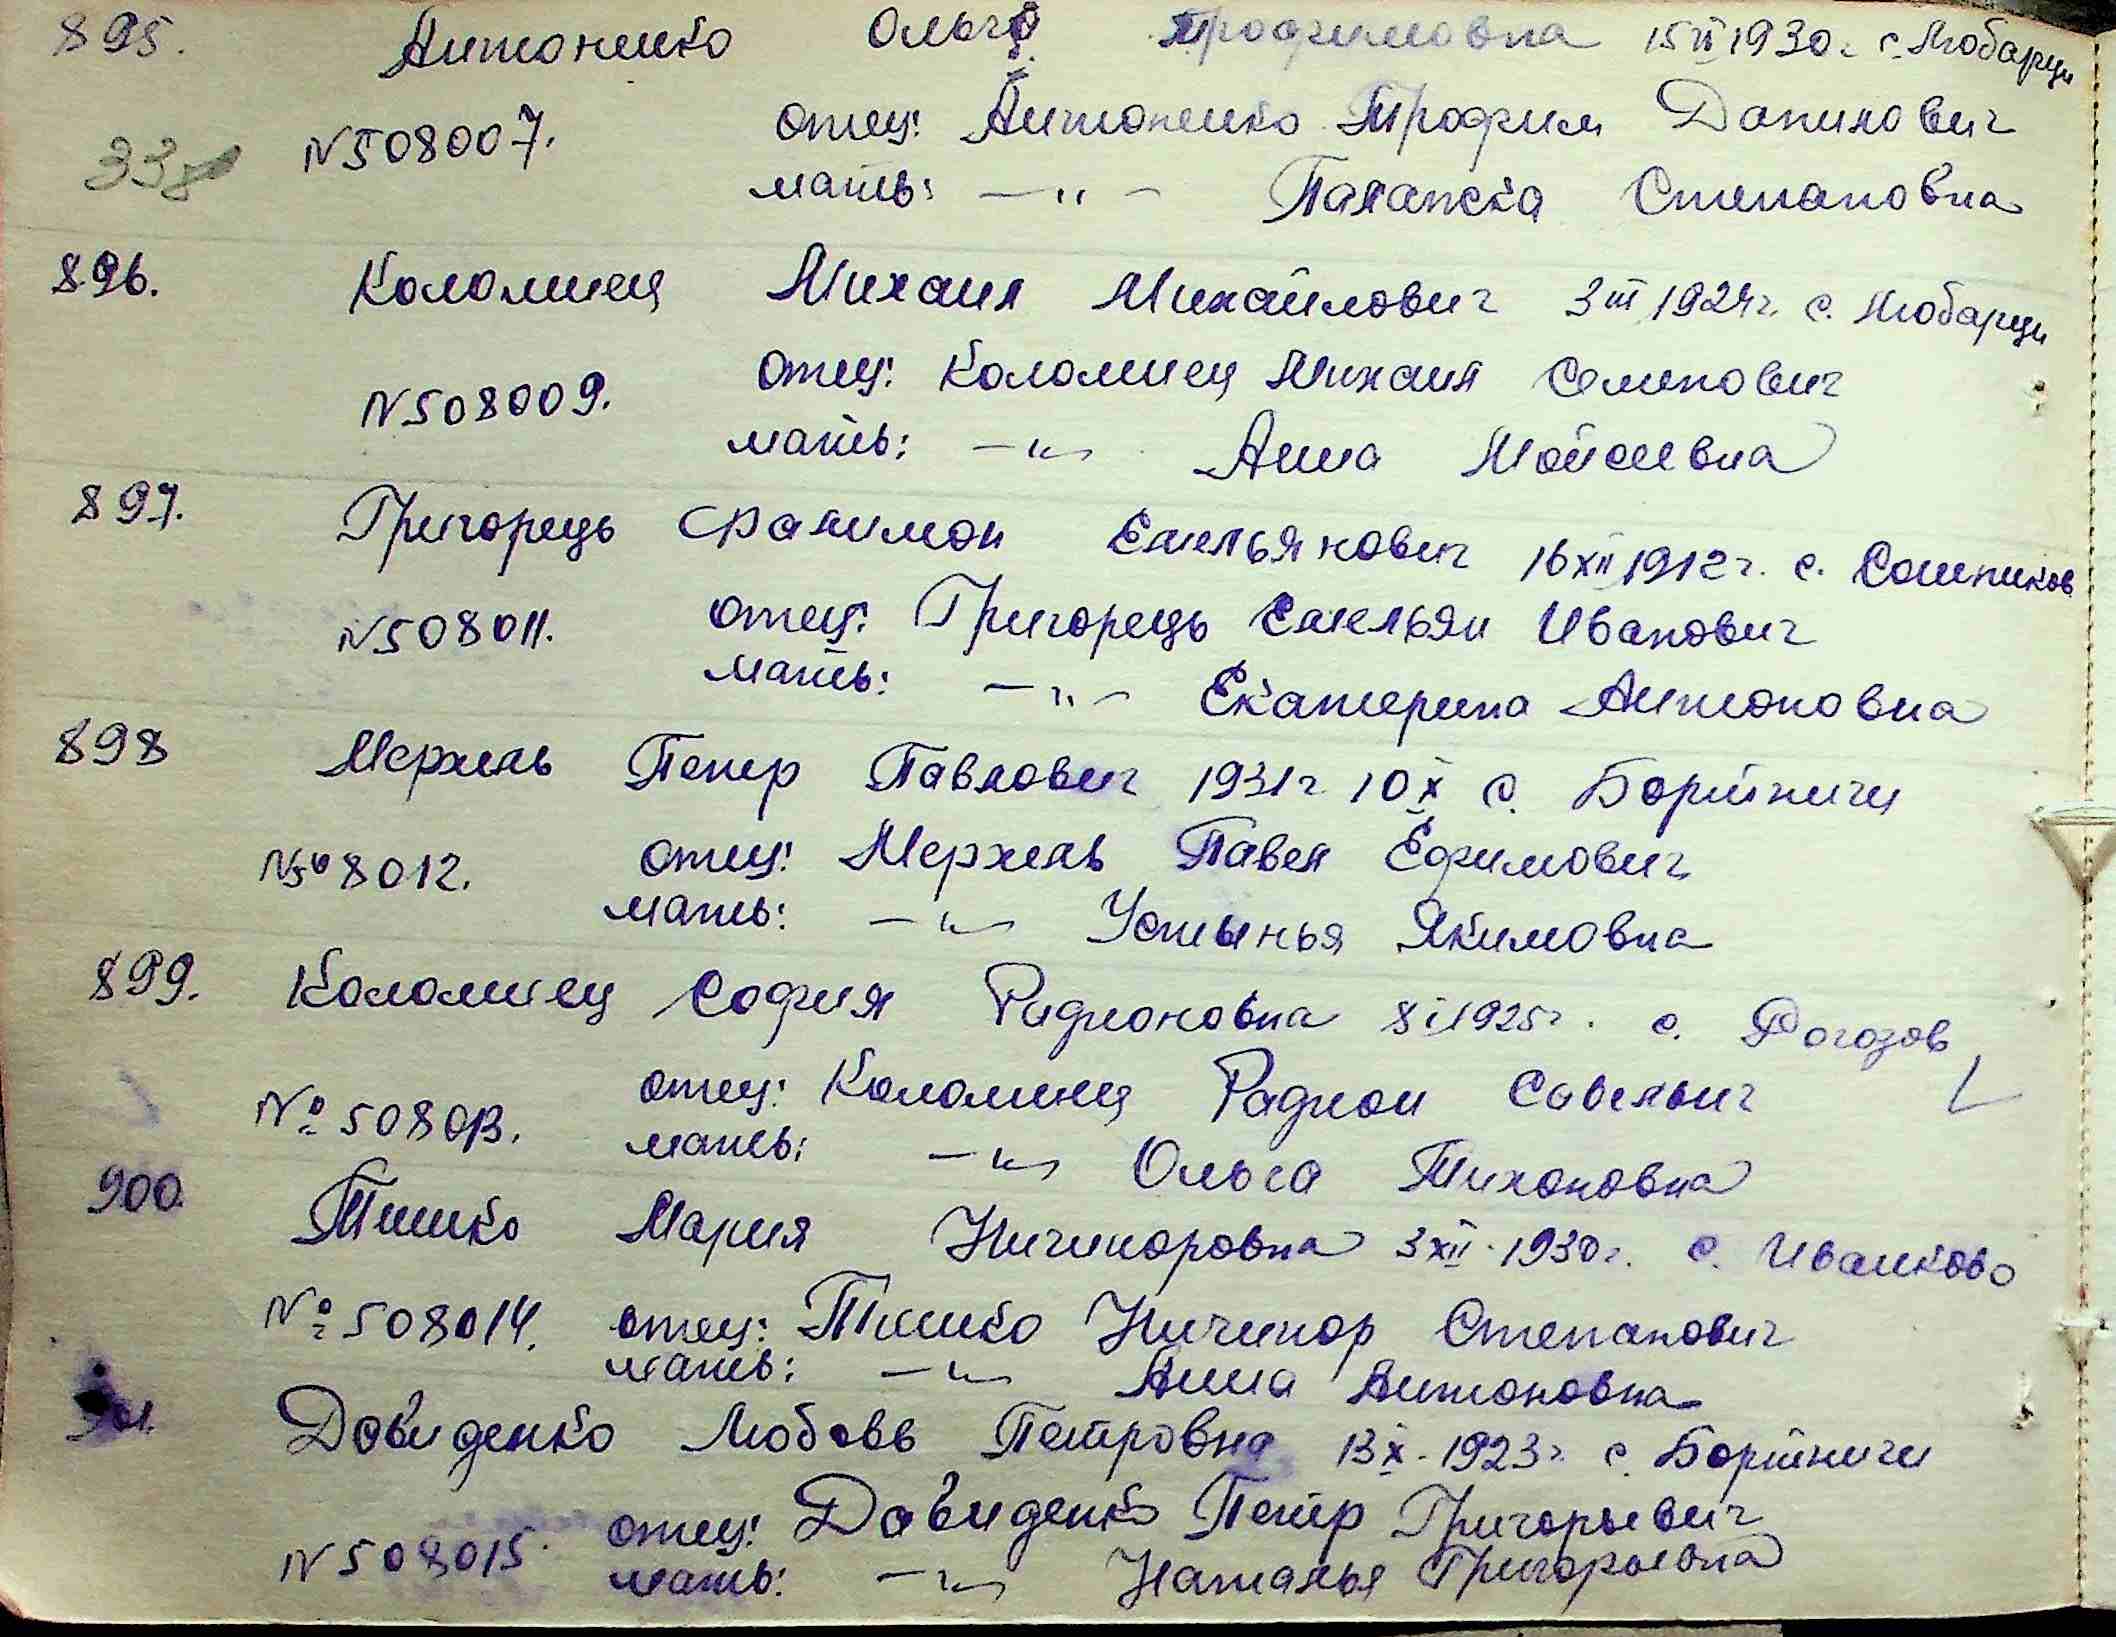 895. Антоненко Ольга Трофимовна 15 II 1930 г. с. Любарцы
отец: Антоненко Трофим Данилович
338 N508007.
мать: — " — Палажка Степановна
896. Коломиец Михаил Михайлович 3 III 1924 г. с. Любарцы
отец: Коломиец Михаил Семенович
N508009.
мать: — " — Анна Мойсеевна
897. Григорець Филимон Емельянович 16 XII 1912 г. с. Сошников
отец: Григорець Емельян Иванович
N508011.
мать: — " — Екатерина Антоновна
898 Мерхель Петр Павлович 1931 г 10 X с. Бортничи
отец: Мерхель Павел Ефимович
N508012.
мать: — " — Устынья Якимовна
899. Коломиец София Радионовна 8 I 1925 г. с. Рогозов
отец: Коломиец Радион Савельич
№ 508013.
мать: — " — Ольга Тихоновна
900. Тишко Мария Ничипоровна 3 XII 1930 г. с. Иванково
№ 508014. отец: Тишко Ничипор Степанович
мать: — " — Анна Антоновна
901. Давиденко Любовь Петровна 13 X 1923 г с. Бортничи
отец: Давиденко Петр Григорьевич
N508015.
мать: — " — Наталья Григорьевна